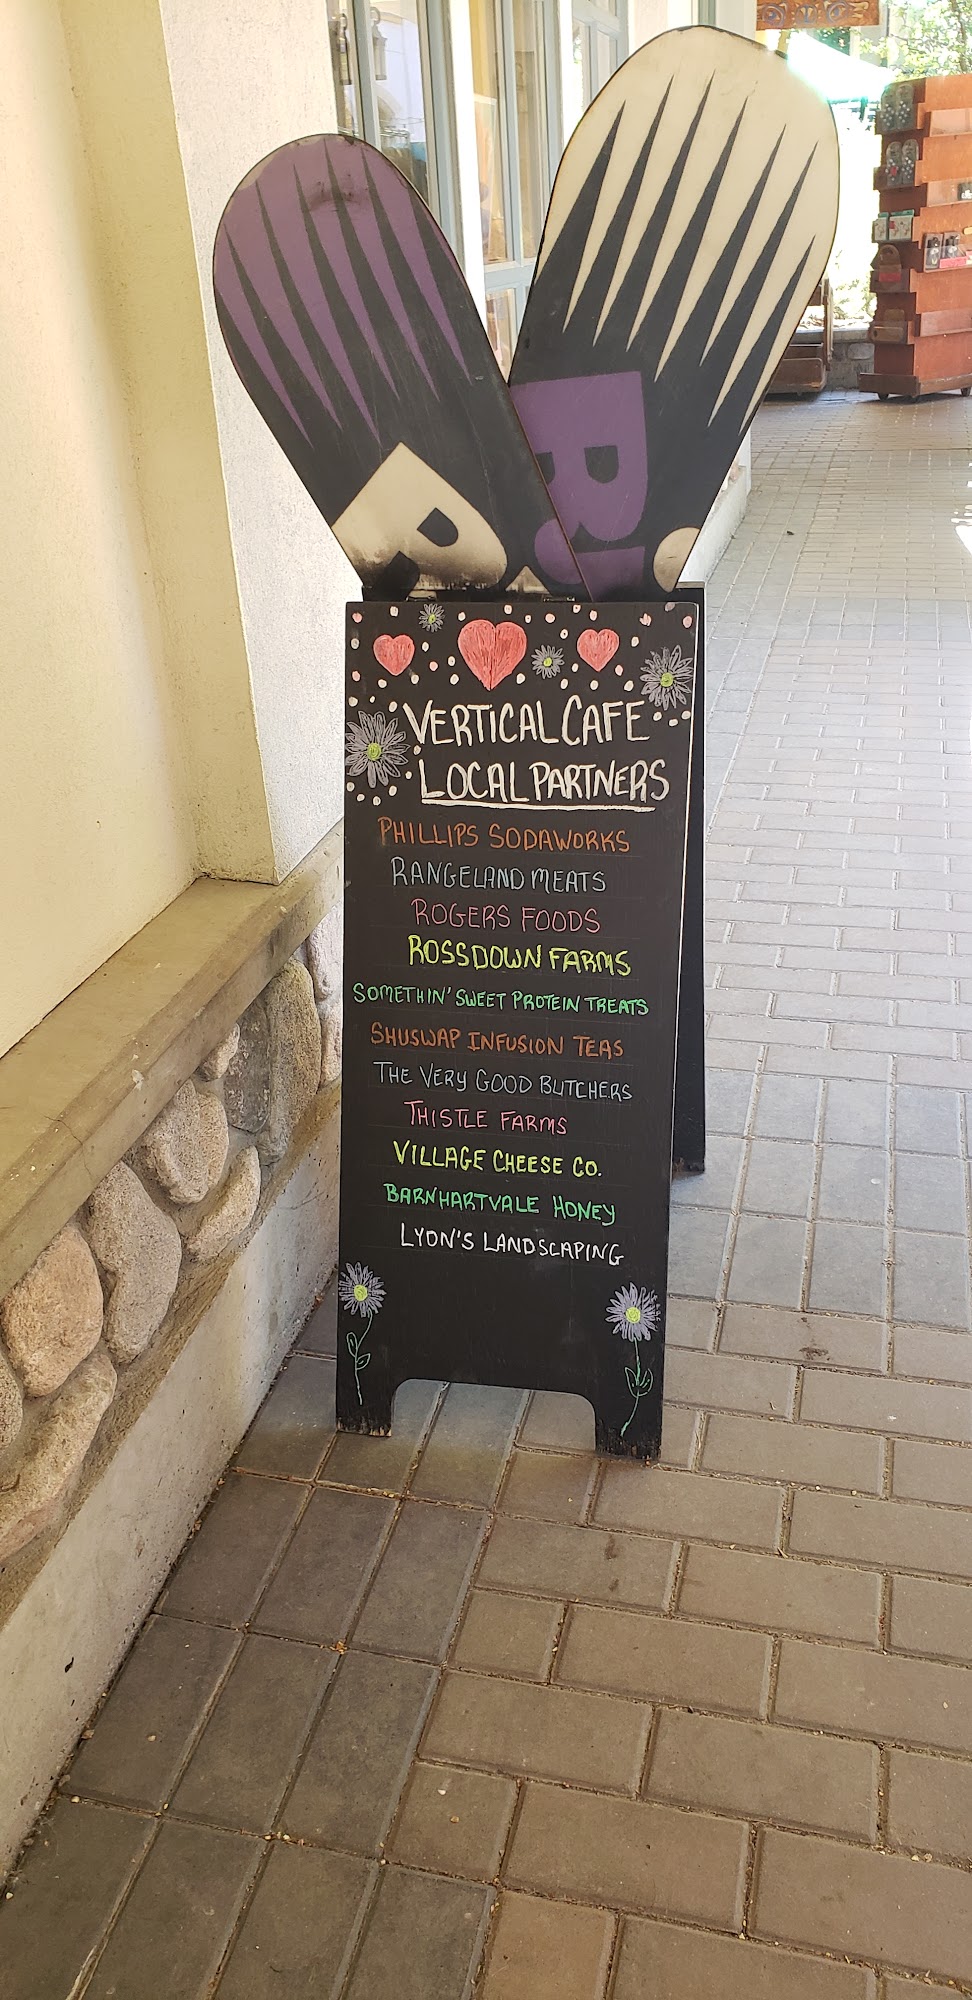 VERTICAL CAFE
LOCAL PARTNERS
PHILLIPS SODAWORKS
RANGELAND MEATS
ROGERS FOODS
ROSSDOWN FARMS
SOMETHIN' SWEET PROTEIN TREATS
SHUSWAP INFUSION TEAS
THE VERY GOOD BUTCHERS
THISTLE FARMS
VILLAGE CHEESE CO.
BARNHARTVALE HONEY
LYON'S LANDSCAPING